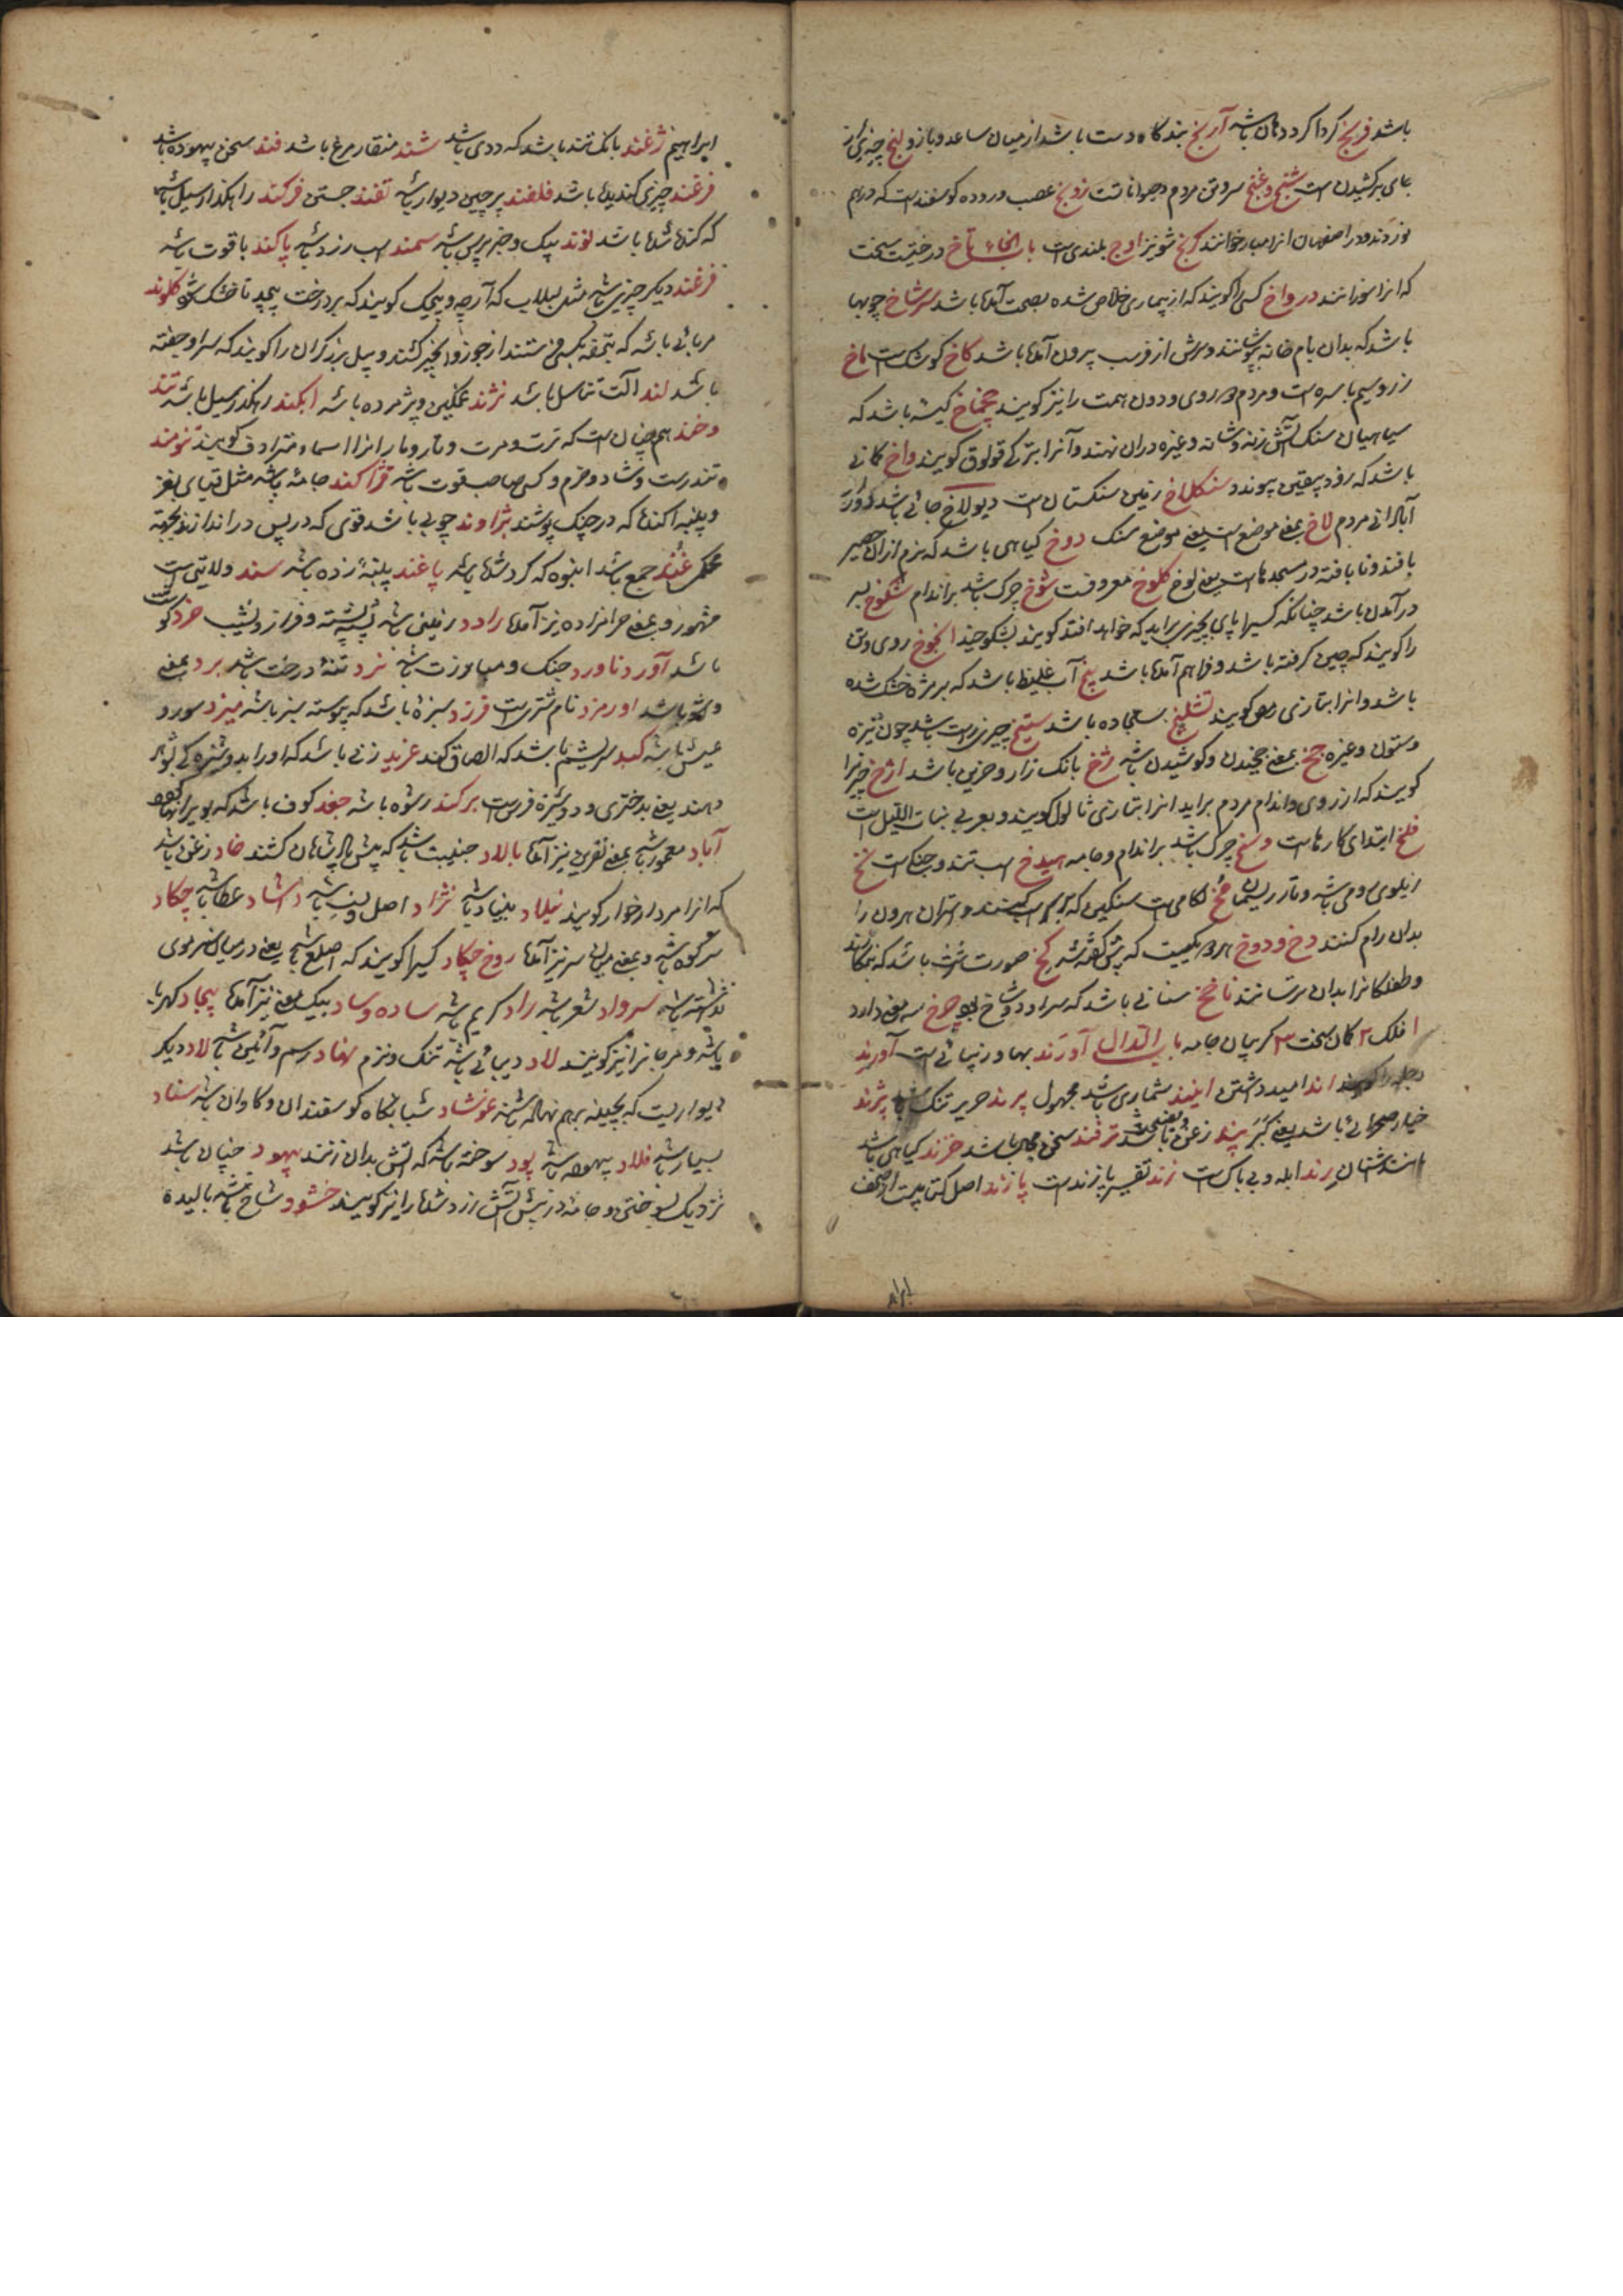 باشد فرنج کرداکرد دهان باشد آرنج بندکاه دست باشد از میان ساعد و بازو لنج چیزی از
جای برکشیدن است شنج و غنج سرون مردم و حیوانات زونج عصب و روده کوسفندست که درهم
نوردند و در اصفهان انرا مبار خوانند کرنج شونیز اوج بلندی است باب الخاء تاخ درختیست سخت
که انرا سوزانند درواخ کسی را کویند که از بیماری خلاص شده بصحت آمده باشد سرشاخ چوبها
باشد که بدان بام خانه بپوشانند و سرش از فرسب بیرون آمده باشد کاخ کوشک است ماخ
زر و سیم ناسره است و مردم دوروی و دون همت را نیز کویند چخماخ کیسه باشد که
سپاهیان سنک آتش زنه و شانه و غیره دران نهند و آنرا بترکی قولوق کویند واخ کمانی
باشد که رود بیقین پیوندد سنکلاخ زمین سنکستان است دیولاخ جائی باشد دور از
آبادانی مردم لاخ بمعنی موضع است یعنی موضع سنک دوخ کیاهی باشد که نرم ازان حصیر
بافند و نابافته در مسجدهاست یعنی لوخ کلوخ معروفست شوخ چرک باشد بر اندام شکوخ بسر
درآمدن باشد چنانکه کسی را پای بچیزی براید که خواهد افتد کویند بشکوخید انجوخ روی و تن
را کویند که چین کرفته باشد و فراهم آمده باشد پیخ آب غلیظ باشد که بر مژه خشک شده
باشد و انرا بتازی رمص کویند تشلیخ سجاده باشد ستیخ چیزی راست باشد چون نیزه
و ستون و غیره چخ بمعنی چخیدن و کوشیدن باشد ژخ بانک زار و حزین باشد اژخ چیز را
کویند که از روی و اندام مردم براید انرا بتازی ثالول کویند و بعربی بنات اللیل است
فلخ ابتدای کارهاست وسخ چرک باشد بر اندام و جامه هیدخ اسب تند و جنکی است نخ
زیلوی رومی باشد و تار ریسمان مخ لکامی است سنکین که بر سر اسب کنند و استران حرون را
بدان رام کنند دخ و دوخ هر دو یکیست که پیش کفته شد کخ صورت زشت باشد که بنکارند
و طفلکانرا بدان بترسانند ناخج سنانی باشد که سر او دو شاخ بود چرخ سه معنی دارد
۱ فلک ۲ کمان سخت ۳ کریبان جامه باب الدال آورند بها و زیبائی است آورند
دجله را کویند اند امید داشتن ایند شماری باشد مجهول پرند حریر تنک باشد پژند
خیار صحرائی باشد یعنی کبر پند زغن باشد ترفند سخن محال باشد خرند کیاهی باشد
اشنان رند ابله و بی باک است زند تفسیر پازندست پازند اصل کتابیست از صحف
ابراهیم ژغند بانک تند باشد که ددی باشد شند منقار مرغ باشد فند سخن بیهوده باشد
فرغند چیزی کندیده باشد فلغند پرچین دیوار باشد تفند جستن فرکند راهکذار سیل باشد
که کنده شده باشد نوند پیک و خبر پرس باشد سمند اسب زرد باشد پاکند یاقوت باشد
فرغند دیکر چیزی باشد مثل لبلاب که آنرا پیچک کویند که بر درخت پیچد تا خشک شود کلوند
مربائی باشد که بتحفه بکسی فرستند از جوز و انجیر کنند و بیل برزکران را کویند که سر او جفته
باشد لند آلت تناسل باشد نژند غمکین و پژمرده باشد ابکند رهکذر سیل باشد تند
و خند هم چنان است که ترت و مرت و تار و مار انرا اسماء مترادف کویند تنومند
تندرست و شاد و خرم و کسی صاحب قوت باشد قزاکند جامه باشد مثل قبای مغز
و پنبه اکنده که در جنک پوشند پژاوند چوبی باشد قوی که در پس در اندازند بجهة
محکمی غند جمع باشد انبوه که کرد شده باشد پاغند پنبه زده باشد سند ولایتی است
مشهور و بمعنی حرامزاده نیز آمده راود زمینی باشد پشته پشته و فراز و نشیب خرد کو
باشد آورد ناورد جنک و مبارزت باشد نرد تنه درخت باشد برد بمعنی
دور باشد اورمزد نام مشتریست فرزد سبزه باشد که پیوسته سبز باشد میزد سور و
عیش باشد کبد سریشم باشد که الصاق کند غرید زنی باشد که او را بدوشیزه کی بشوهر
دهند یعنی بدختری و دوشیزه فرست برکند رشوه باشد جغد کوف باشد که بویرانها بود
آباد معمور باشد بمعنی آفرین نیز آمده بالاد جنیبت باشد که پیش پادشاهان کشند خاد زغن باشد
که انرا مردارخوار کویند نیلاد بنیاد باشد نژاد اصل و نسب باشد داشاد عطا باشد چکاد
سر کوه باشد و بمعنی میان سر نیز آمده روخ چکاد کسی را کویند که اصلع باشد یعنی در میان سر موی
نداشته باشد سرواد شعر باشد راد کریم باشد ساده وساد بیک معنی نیز آمده بیجاد کهربا
باشد و مرجانرا نیز کویند لاد دیبائی باشد تنک و نرم نهاد رسم و آئین باشد لاد دیکر
دیواریست که بچینه برهم نهاده باشند غوشاد شبانکاه کوسفندان و کاوان باشد سناد
بسیار باشد فلاد بیهوده باشد پود سوخته باشد که آتش بدان زنند بیهود چنان باشد
نزدیک بسوختن و جامه در پیش آتش زرد شده را نیز کویند خشود شاخ باشد بالیده